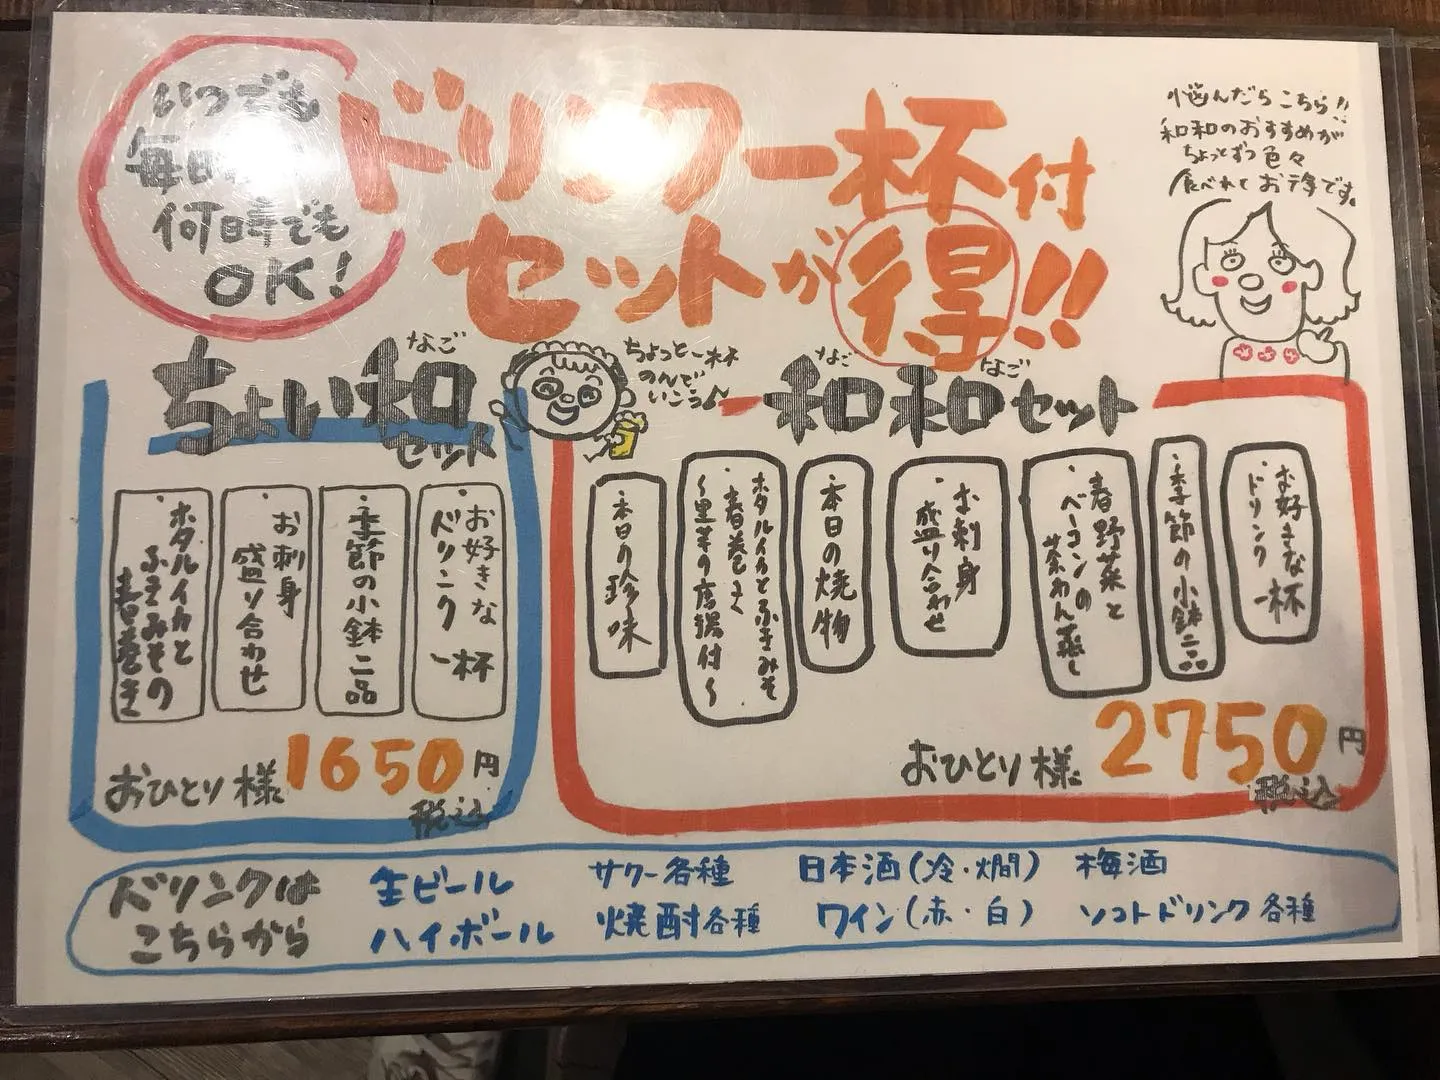 いつでも
毎日
何時でも
OK!
ドリンク一杯付
セットが得!!
悩んだらこちら!!
和和のおすすめが
ちょっとずつ色々
食べれてお得です。
ちょい和
なご
セット
ちょっと一杯
のんで
いこう♪
和和セット
なご
なご
・お好きな
ドリンク
一杯
・季節の小鉢二品
・お刺身
盛り合わせ
・ホタルイカと
ふきみその
春巻き
おひとり様1650円
税込
・お好きな
ドリンク一杯
・季節の小鉢二品
・春野菜と
ベーコンの
茶わん蒸し
・お刺身
盛り合わせ
・本日の焼物
・ホタルイカとふきみそ
春巻き
〜里芋の唐揚付〜
・本日の珍味
おひとり様2750円
税込
ドリンクは
こちらから
生ビール サワー各種 日本酒(冷・燗) 梅酒
ハイボール 焼酎各種 ワイン(赤・白) ソフトドリンク各種